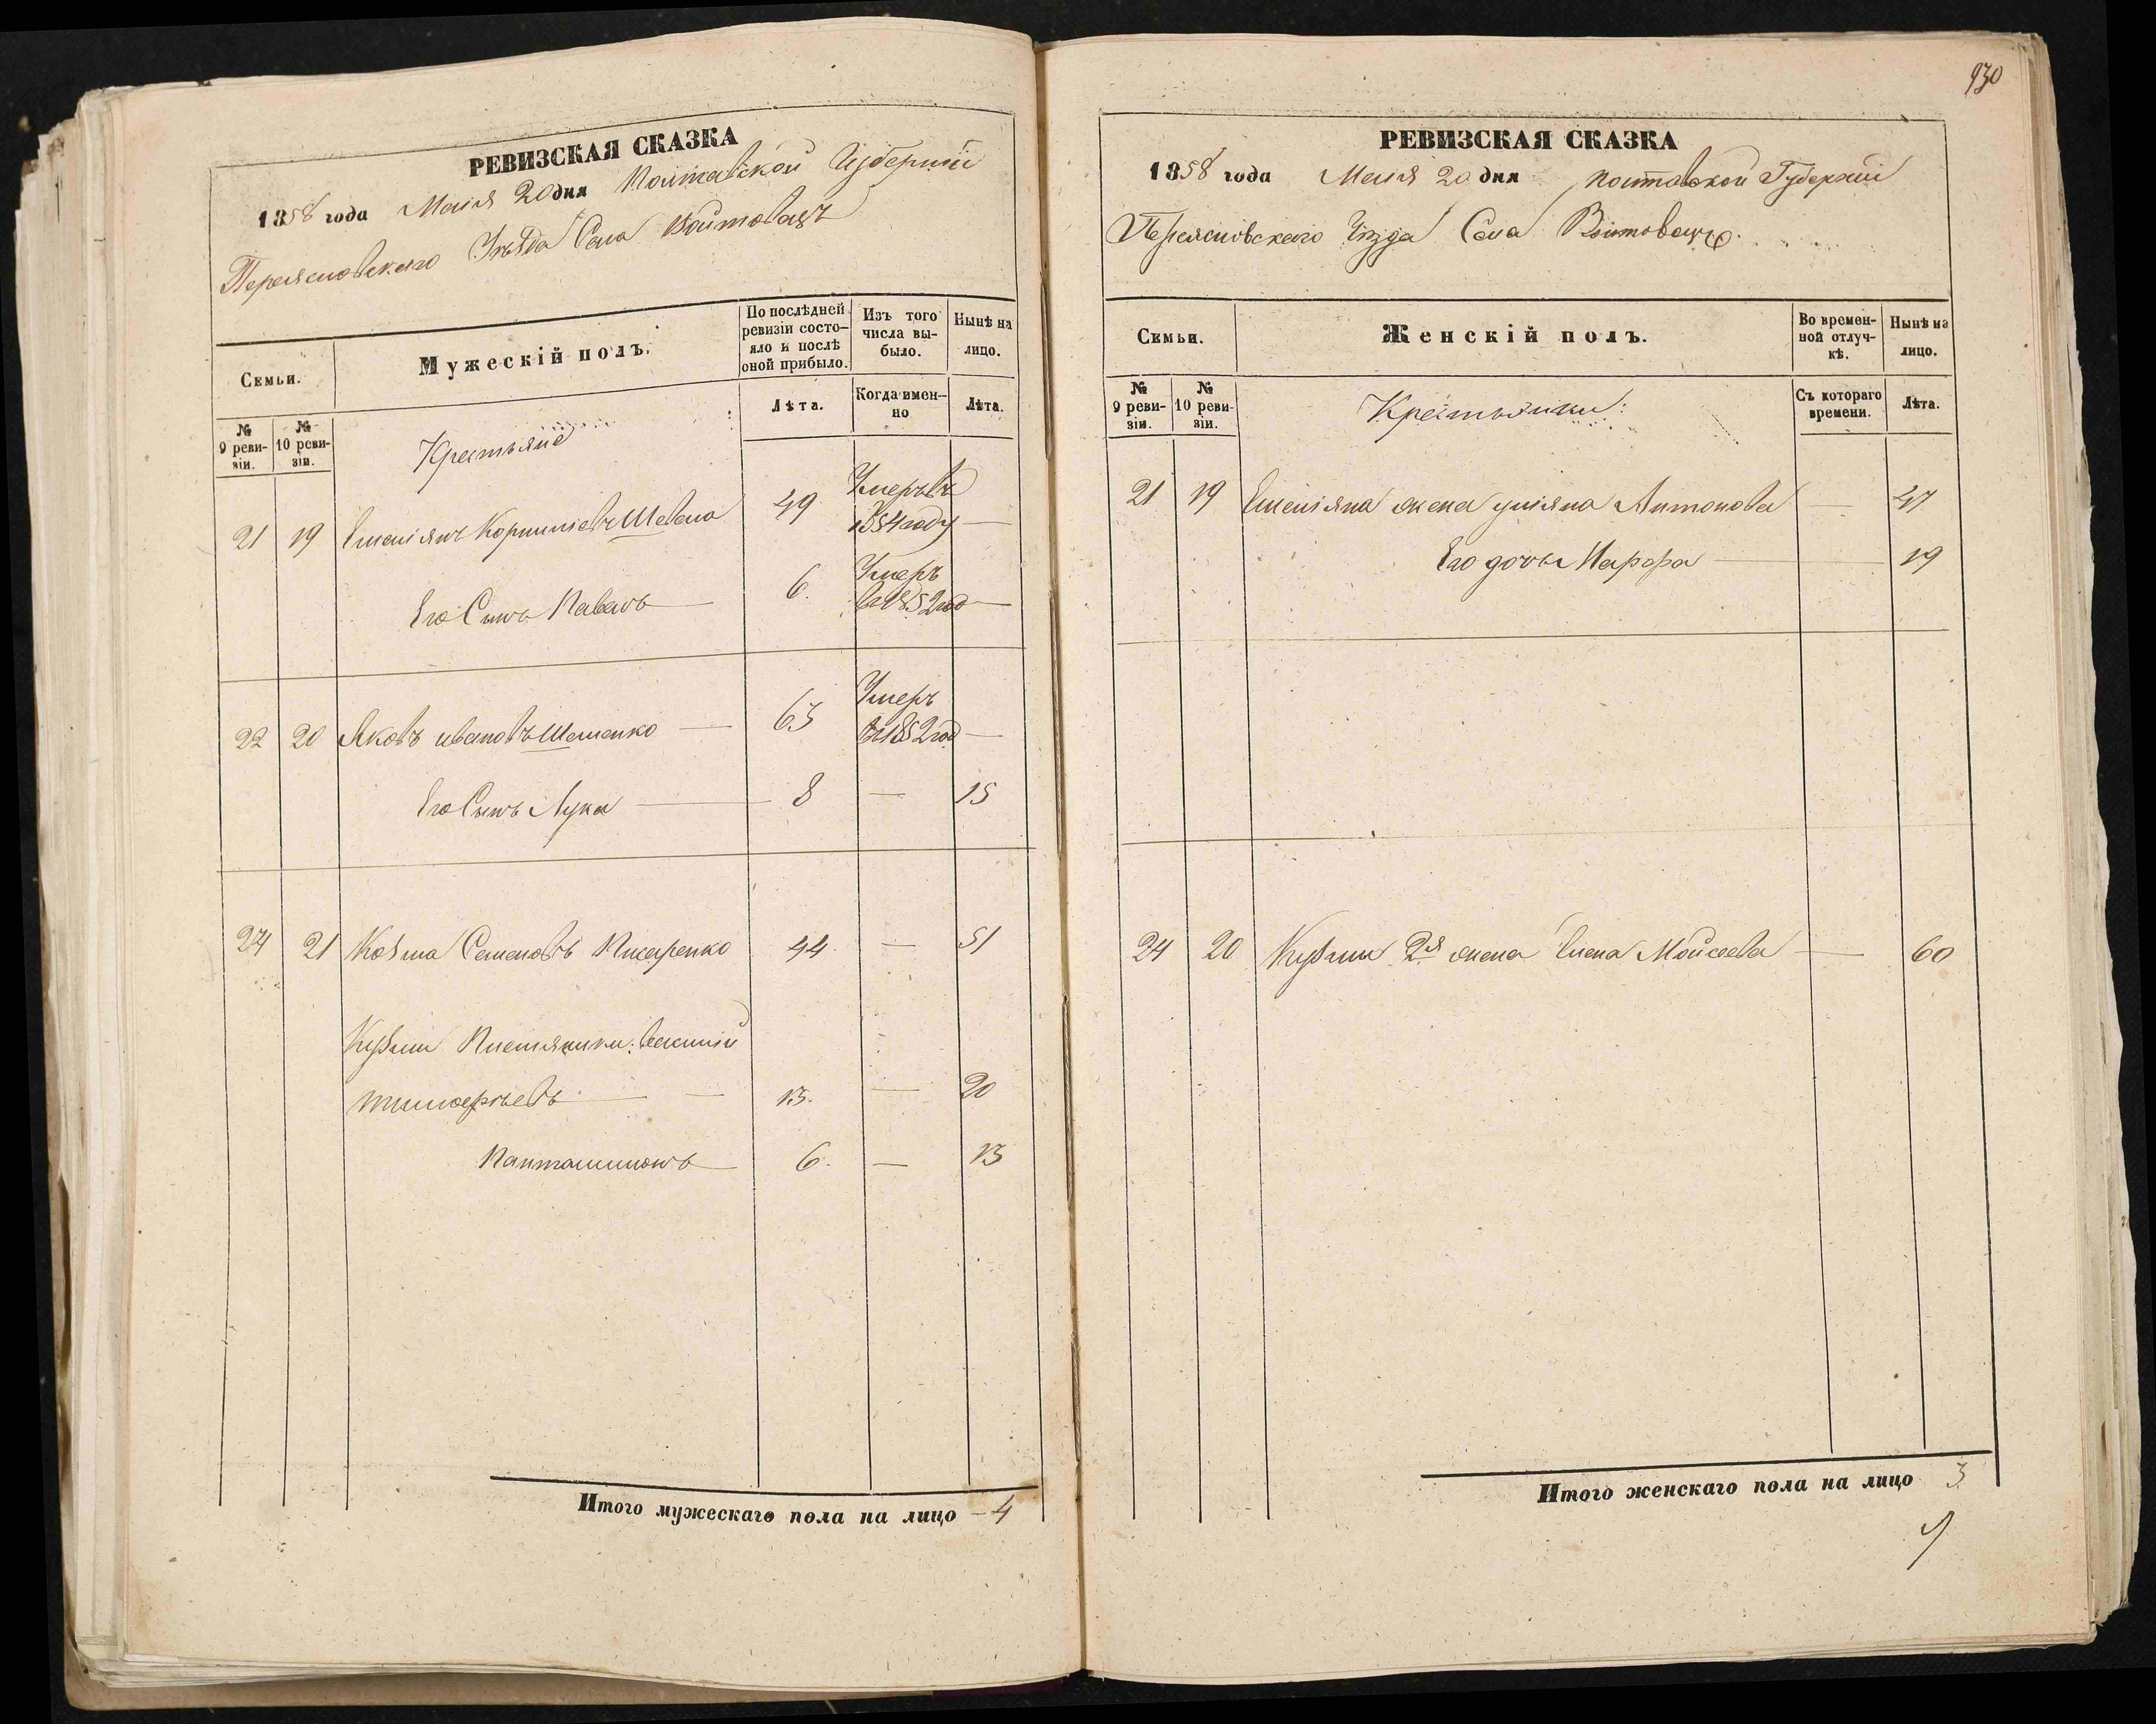 РЕВИЗСКАЯ СКАЗКА
1858 года Маія 20 дня Полтавской Губерніи
Переясловскаго Уѣзда Села Войтовецъ
Семьи.
Мужескій полъ.
По послѣдней ревизіи состояло и послѣ оной прибыло.
Изъ того числа выбыло.
Нынѣ на лицо.
№ 9 ревизіи.
№ 10 ревизіи.
Крестьяне
Лѣта.
Когда именно
Лѣта.
21 19 Емеліянъ Корниліевъ Шевела 49 Умеръ въ 1854 году —
Его Сынъ Павелъ — 6. Умеръ въ 1852 год —
22 20 Яковъ ивановъ Шеменко — 63 Умеръ въ 1852 год —
Его Сынъ Лука — 8 — 15
24 21 Козма Семеновъ Писаренко 44 — 51
Кузмы Племяники:
тимоерьевъ — 13. — 20
Пантилимонъ — 6. — 13
Итого мужескаго пола на лицо — 4
930
РЕВИЗСКАЯ СКАЗКА
1858 года Маія 20 дня Полтавской Губерніи
Переясловскаго Уѣзда Села
Семьи.
Женскій полъ.
Во временной отлучкѣ.
Нынѣ на лицо.
№ 9 ревизіи.
№ 10 ревизіи.
Крестьянки:
Съ котораго времени.
Лѣта.
21 19 Емеліяна жена уліяна Антонова — 47
Его дочь Марфа — 19
24 20 Кузмы 2я жена Елена Мойсеева — 60
Итого женскаго пола на лицо 3